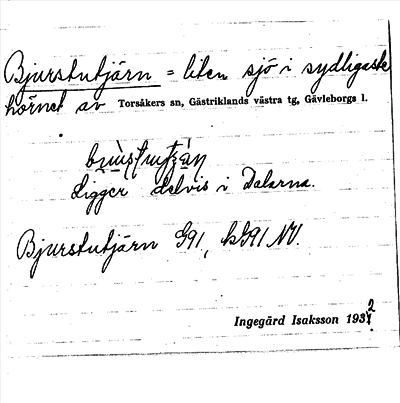 Bjurstutjärn = liten sjö i sydligaste
hörnet av Torsåkers sn, Gästriklands västra tg, Gävleborgs l.
Ligger delvis i Dalarna.
Bjurstutjärn G91, bl G91 NV.
Ingegärd Isaksson 1932